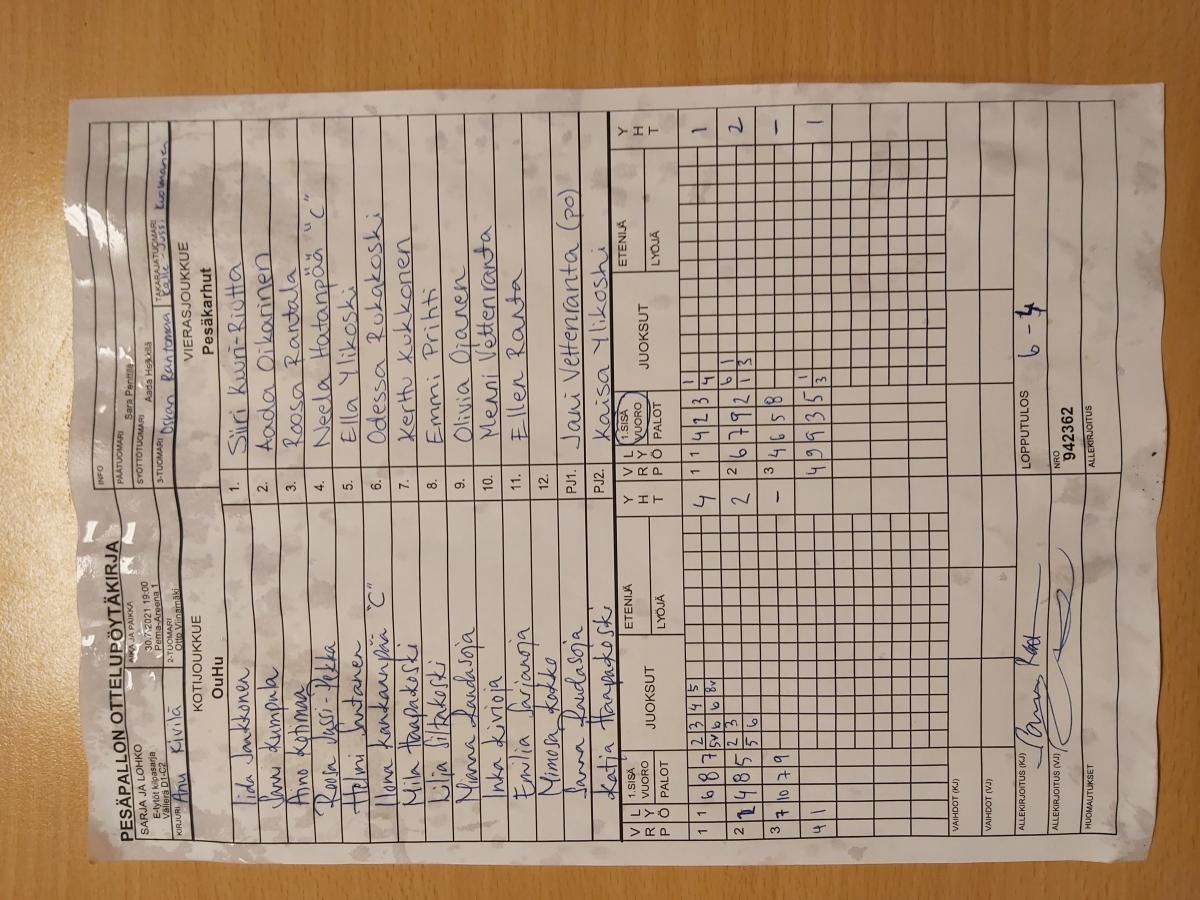 PESÄPALLON OTTELUPÖYTÄKIRJA
SARJA JA LOHKO
E-tytöt kilpasarja
Väliera D1-C2
AIKA JA PAIKKA
30.7.2021 19:00
Pema-Areena 1
INFO
PÄÄTUOMARI Sara Penttilä
SYÖTTÖTUOMARI Aada Heikkilä
KIRJURI Anu Kivilä
2-TUOMARI Otto Viinamäki
3-TUOMARI Oskari Rantomaa
TAKARAJATUOMARI Kalle-Jussi Kuosmanen
KOTIJOUKKUE
OuHu
VIERASJOUKKUE
Pesäkarhut
Iida Jaakkonen 1. Siiri Kuuri-Riutta
Jenni Kumpula 2. Aada Oikarinen
Aino Kotimaa 3. Roosa Rantala
Roosa Jussi-Pekka 4. Neela Hatanpää "C"
Helmi Santanen 5. Ella Ylikoski
Ilona Kankaanpää "C" 6. Odessa Rukakoski
Mila Haapakoski 7. Kerttu Kukkonen
Lilja Siltakoski 8. Emmi Prihti
Minna Raudasoja 9. Olivia Ojanen
Inka Kivioja 10. Menni Vettenranta
Emilia Sarjanoja 11. Ellen Ranta
Mimosa Kakko 12.
Sanna Raudasoja PJ1. Jani Vettenranta (po)
Katja Haapakoski PJ2. Kaisa Ylikoski
VRP LYÖ 1.SISÄ VUORO PALOT JUOKSUT ETENIJÄ LYÖJÄ YHT
VRP LYÖ 1.SISÄ VUORO PALOT JUOKSUT ETENIJÄ LYÖJÄ YHT
1 1 6 8 7 2 3 4 5 4
5v 6 6 8v
1 1 4 2 3 1 1
4
2 4 8 5 2 3 2
5 6
2 6 7 9 2 6 1 2
1 3
3 7 10 7 9 -
3 4 6 5 8 -
4 1
4 9 9 3 5 1 1
3
VAIHDOT (KJ)
VAIHDOT (VJ)
ALLEKIRJOITUS (KJ)
LOPPUTULOS 6 - 4
ALLEKIRJOITUS (VJ)
NRO
942362
HUOMAUTUKSET
ALLEKIRJOITUS